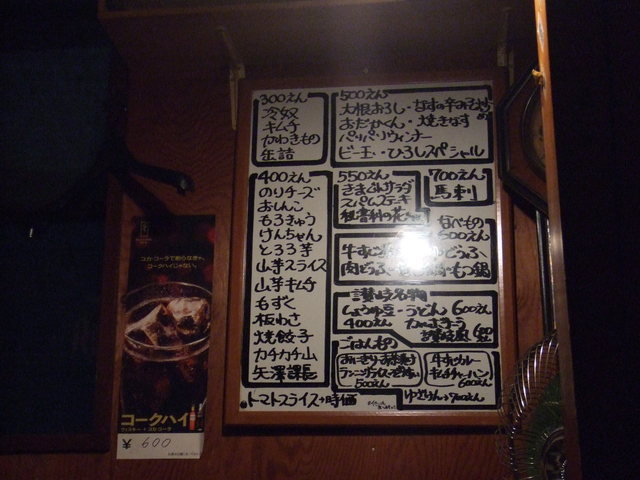 300えん
冷奴
キムチ
かわきもの
缶詰
500えん
大根おろし・なすの辛みそ炒め
おだっくん・焼きなす
パリパリウィンナー
ビー玉・ひろしスペシャル
400えん
のりチーズ
おしんこ
もろきゅう
けんちゃん
とろろ芋
山芋スライス
山芋キムチ
もずく
板わさ
焼餃子
カチカチ山
矢澤課長
550えん
きまぐれサラダ
スパムステーキ
秘書科の花
700えん
馬刺
なべもの
牛すじ
肉どうふ・もつ鍋
讃岐名物
しょうゆ豆・うどん 600えん
400えん
ごはんもの
おにぎり・お茶漬け
500えん
牛すじカレー
キムチチャーハン
600えん
トマトスライス→時価
コカ・コーラで割らなきゃ、
コークハイじゃない。
コークハイ
ウィスキー+コカ・コーラ
¥600